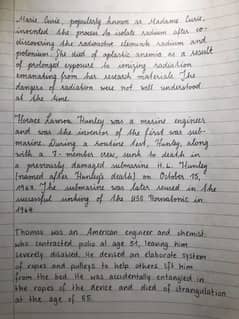 Marie Curie, popularly known as Madame Curie,
invented the process to isolate radium after co-
discovering the radioactive elements radium and
polonium. She died of aplastic anemia as a result
of prolonged exposure to ionizing radiation
emanating from her research materials. The
dangers of radiation were not well understood
at the time.
Horace Lawson Hunley was a marine engineer
and was the inventor of the first war sub-
marine. During a routine test, Hunley, along
with a 7-member crew, sunk to death in
a previously damaged submarine H. L. Hunley
(named after Hunley's death) on October 15,
1963. The submarine was later reused in the
successful sinking of the USS Housatonic in
1964
Thomas was an American engineer and chemist,
who contracted polio at age 51, leaving him
severely disabled. He devised an elaborate system
of ropes and pulleys to help others lift him
from the bed. He was accidentally entangled in
the ropes of the device and died of strangulation
at the age of 55.